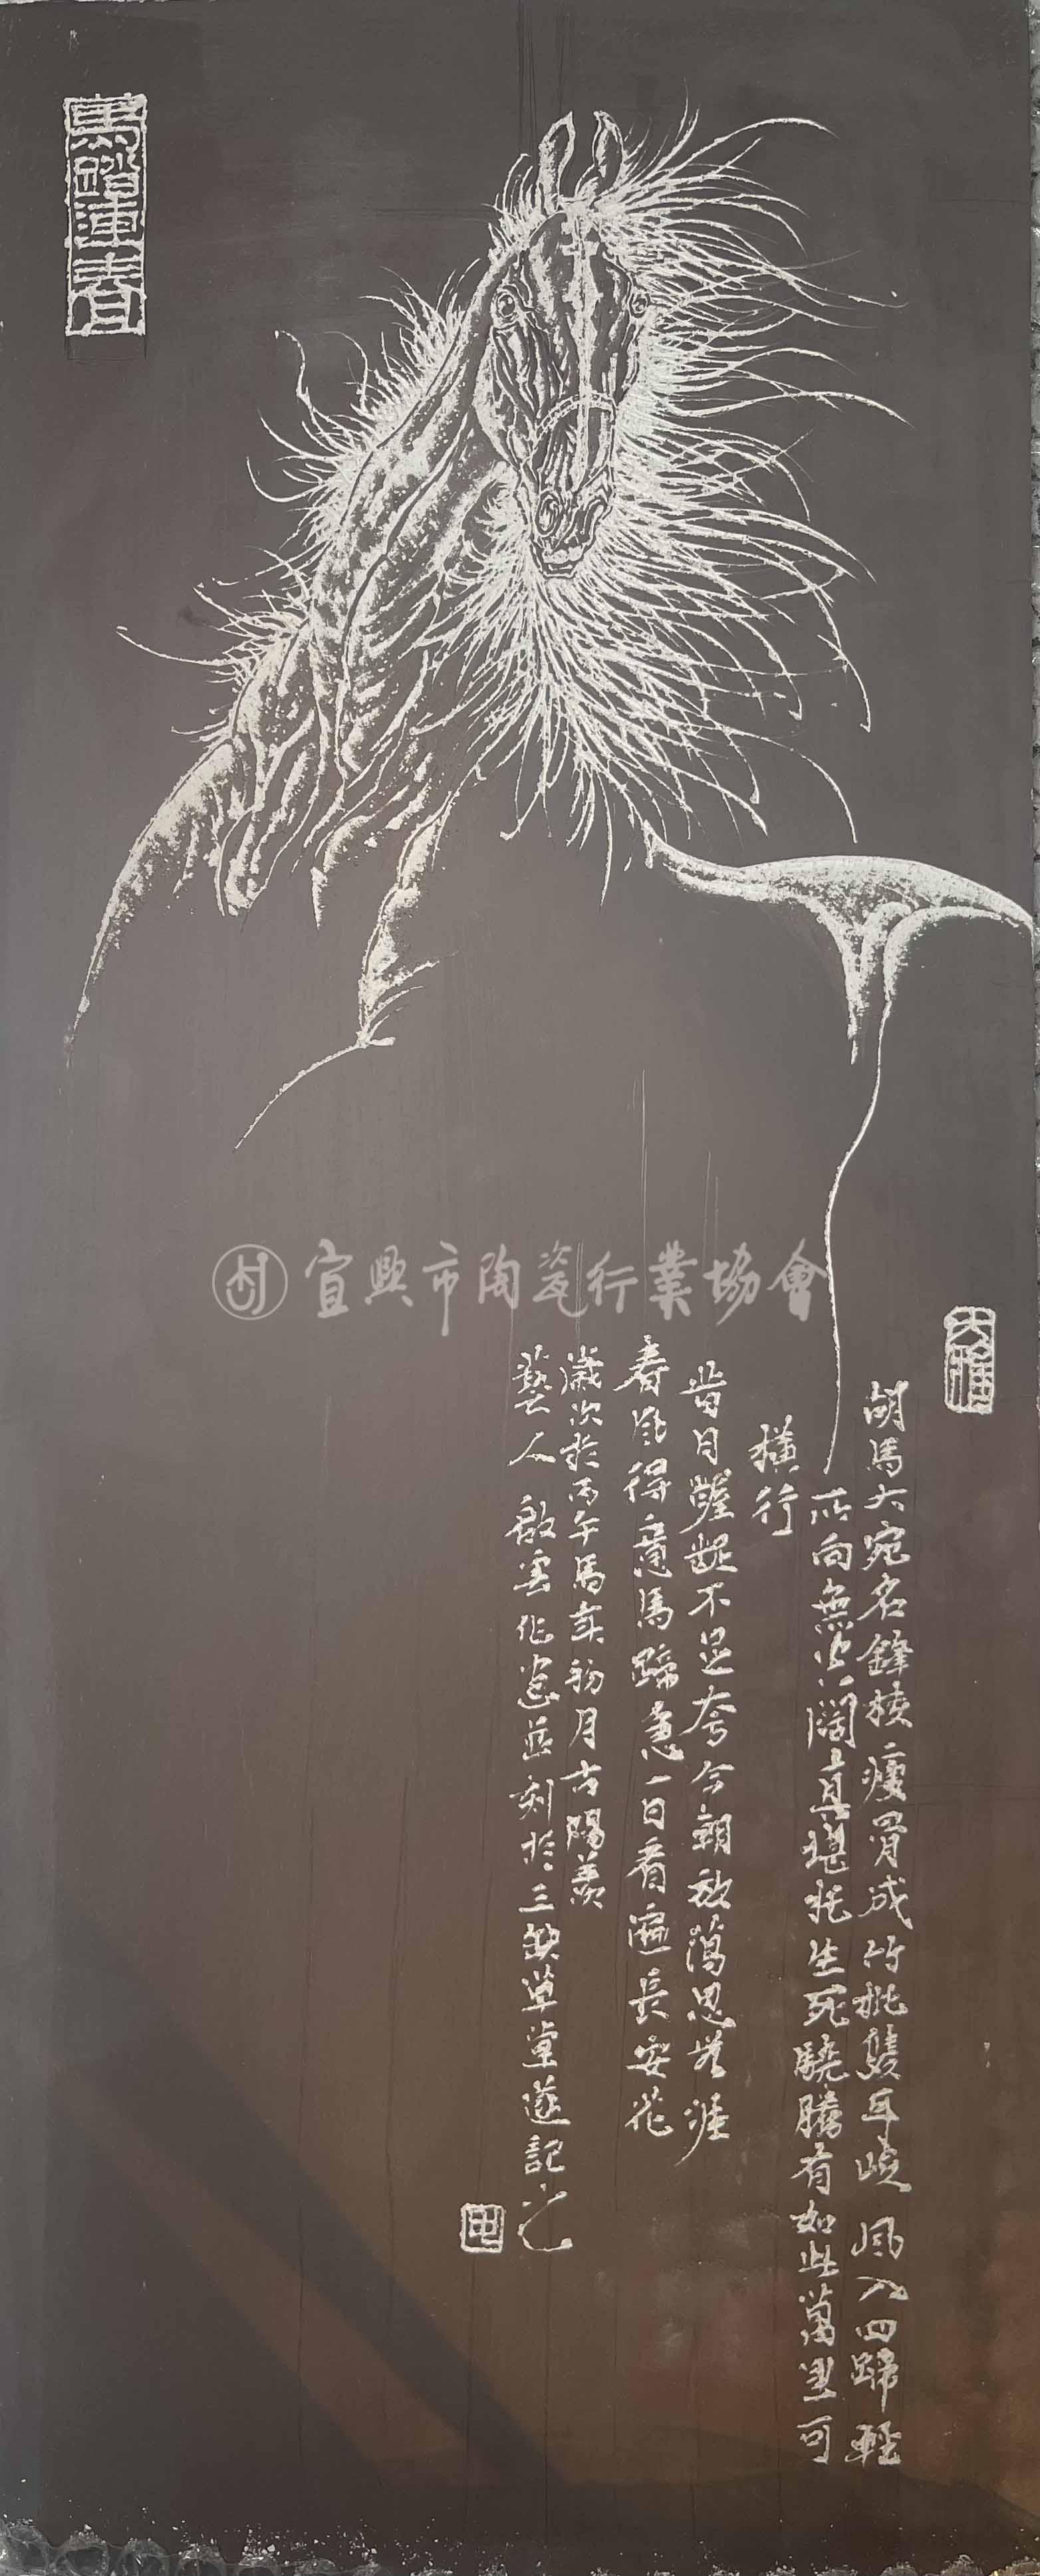 馬踏春
宜興市陶瓷行業協會
大雅
胡馬大宛名鋒棱瘦骨成竹批雙耳峻風入四蹄輕
所向無空闊真堪托生死驍騰有如此萬里可
橫行
昔日齷齪不足夸今朝放蕩思無涯
春風得意馬蹄急一日看遍長安花
歲次於丙午馬年初月古陽羨
藝人啟雲作並刻於三缺草堂記之